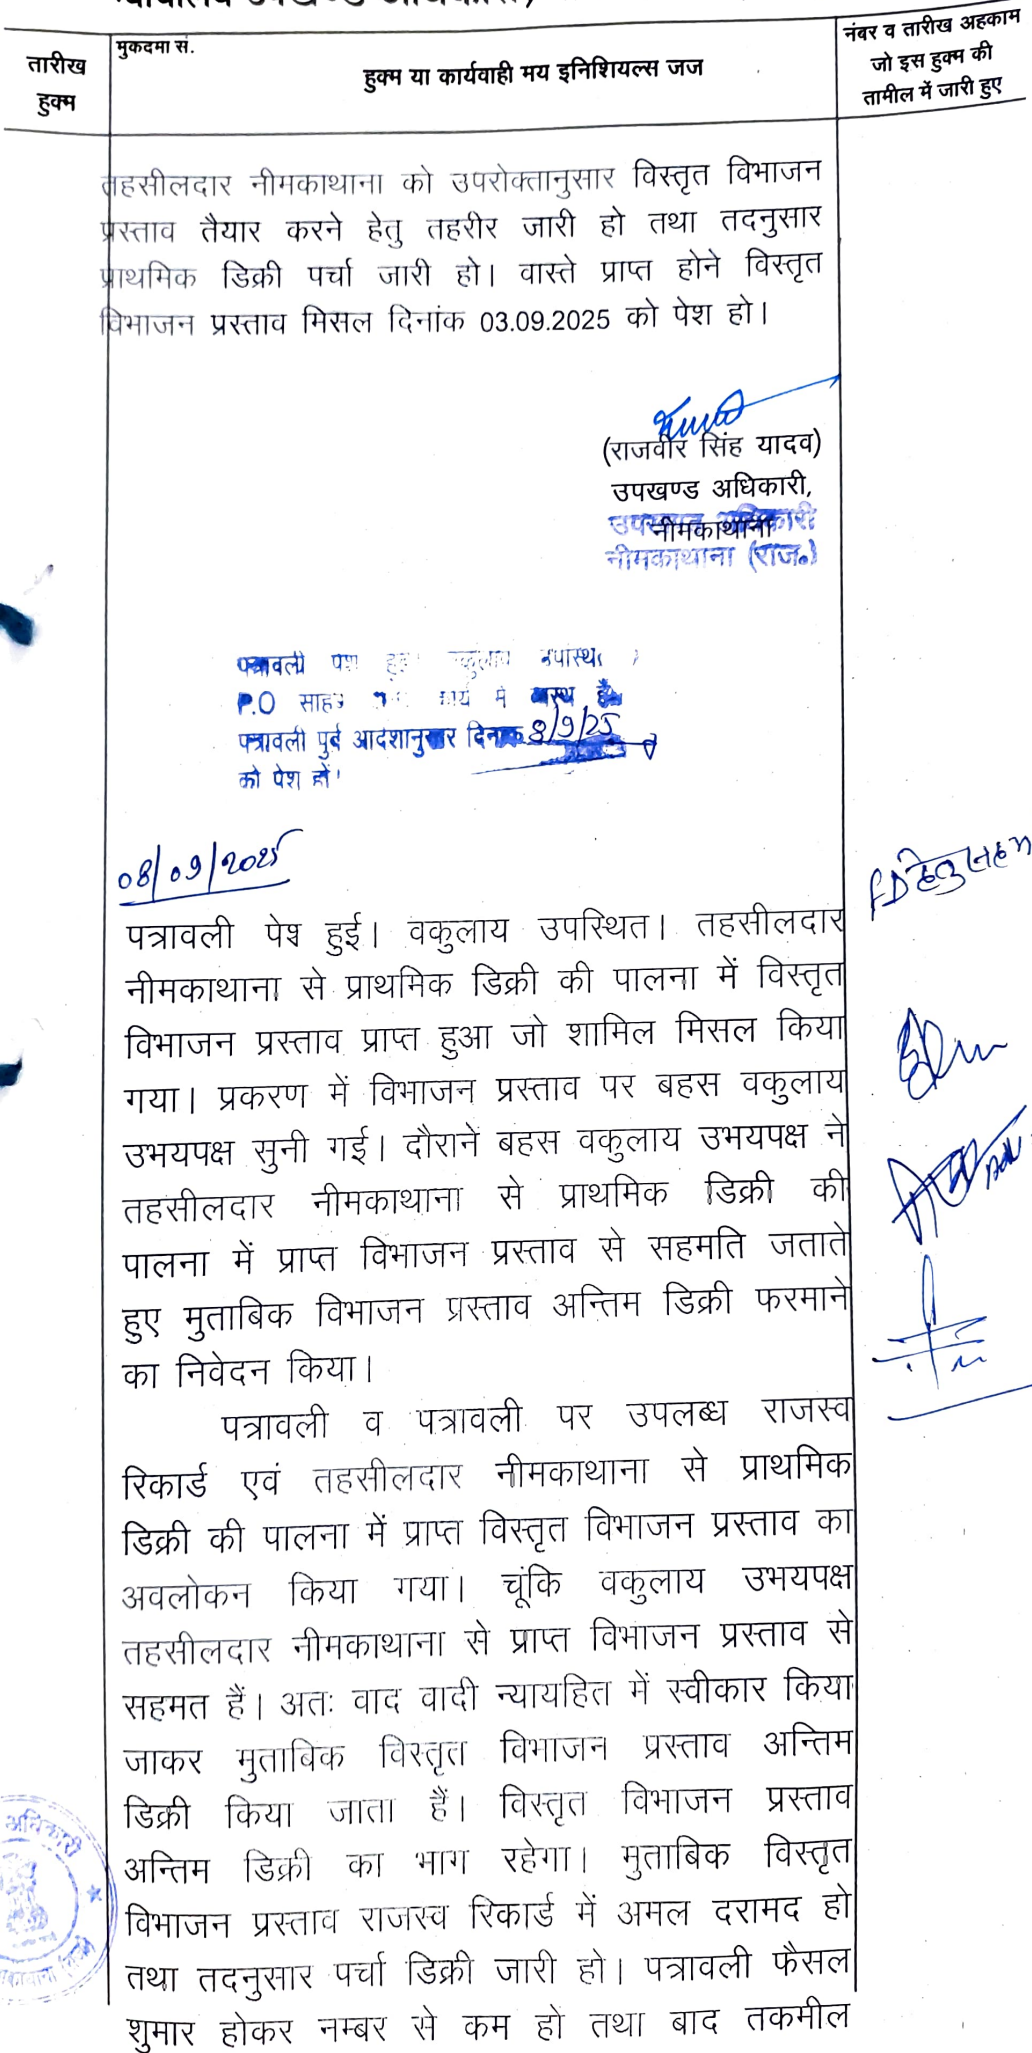 मुकदमा सं.
तारीख
हुक्म
हुक्म या कार्यवाही मय इनिशियल्स जज
नंबर व तारीख अहकाम
जो इस हुक्म की
तामील में जारी हुए
तहसीलदार नीमकाथाना को उपरोक्तानुसार विस्तृत विभाजन
प्रस्ताव तैयार करने हेतु तहरीर जारी हो तथा तदनुसार
प्राथमिक डिक्री पर्चा जारी हो। वास्ते प्राप्त होने विस्तृत
विभाजन प्रस्ताव मिसल दिनांक 03.09.2025 को पेश हो।
(राजवीर सिंह यादव)
उपखण्ड अधिकारी,
नीमकाथाना
उपखण्ड अधिकारी
नीमकाथाना (राज०)
पत्रावली पेश
P.O साहब
पत्रावली पुर्व आदशानुसार दिनांक 8/9/25
को पेश हो।
08/09/2025
पत्रावली पेश हुई। वकुलाय उपस्थित। तहसीलदार
नीमकाथाना से प्राथमिक डिक्री की पालना में विस्तृत
विभाजन प्रस्ताव प्राप्त हुआ जो शामिल मिसल किया
गया। प्रकरण में विभाजन प्रस्ताव पर बहस वकुलाय
उभयपक्ष सुनी गई। दौराने बहस वकुलाय उभयपक्ष ने
तहसीलदार नीमकाथाना से प्राथमिक डिक्री की
पालना में प्राप्त विभाजन प्रस्ताव से सहमति जताते
हुए मुताबिक विभाजन प्रस्ताव अन्तिम डिक्री फरमाने
का निवेदन किया।
पत्रावली व पत्रावली पर उपलब्ध राजस्व
रिकार्ड एवं तहसीलदार नीमकाथाना से प्राथमिक
डिक्री की पालना में प्राप्त विस्तृत विभाजन प्रस्ताव का
अवलोकन किया गया। चूंकि वकुलाय उभयपक्ष
तहसीलदार नीमकाथाना से प्राप्त विभाजन प्रस्ताव से
सहमत हैं। अतः वाद वादी न्यायहित में स्वीकार किया
जाकर मुताबिक विस्तृत विभाजन प्रस्ताव अन्तिम
डिक्री किया जाता हैं। विस्तृत विभाजन प्रस्ताव
अन्तिम डिक्री का भाग रहेगा। मुताबिक विस्तृत
विभाजन प्रस्ताव राजस्व रिकार्ड में अमल दरामद हो
तथा तदनुसार पर्चा डिक्री जारी हो। पत्रावली फैसल
शुमार होकर नम्बर से कम हो तथा बाद तकमील
अधिकारी